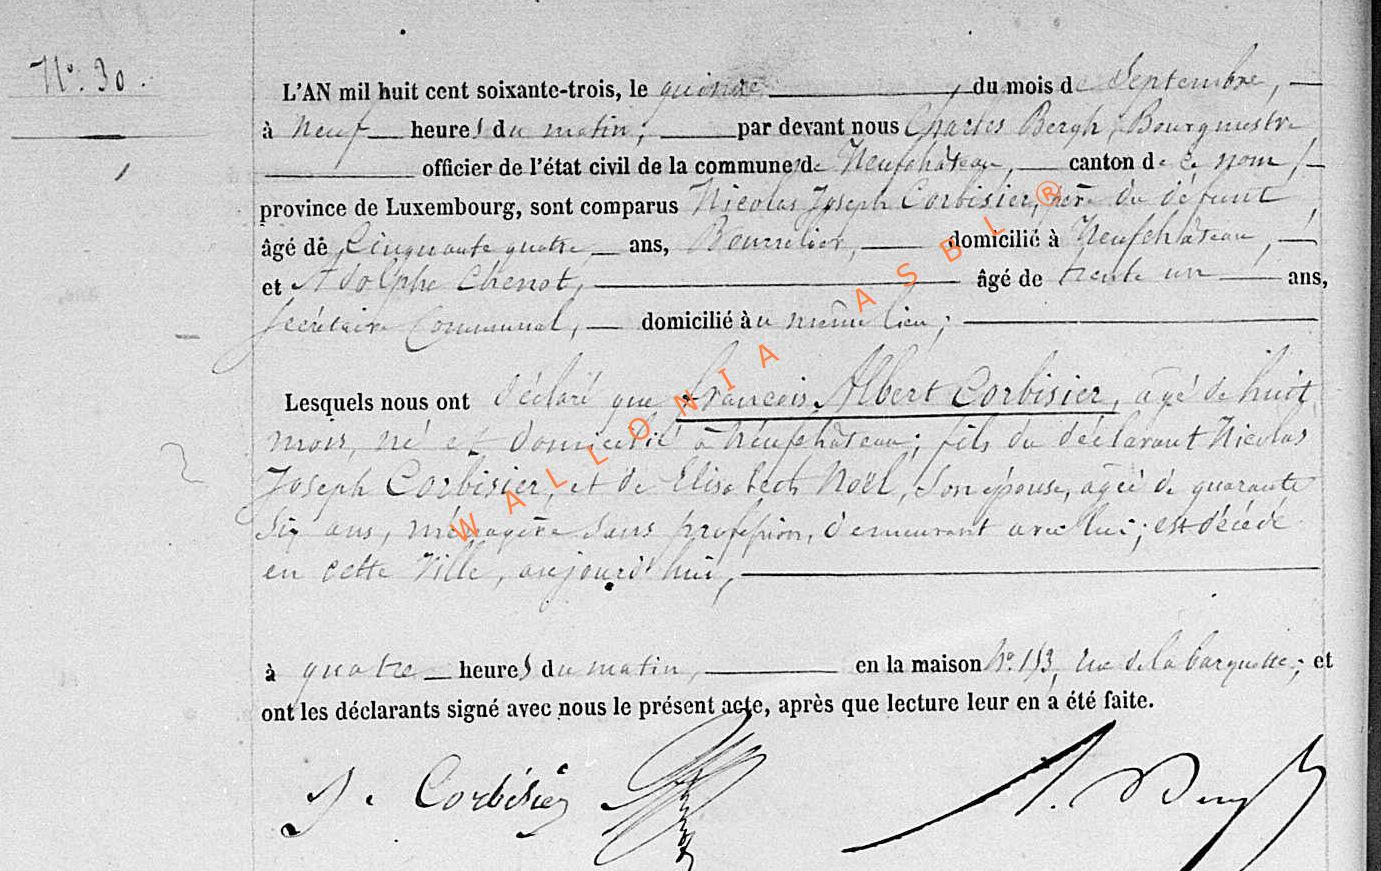 N° 30.
L'AN mil huit cent soixante-trois, le quinze, du mois de Septembre,
à neuf heures du matin; par devant nous Charles Bergh, Bourgmestre
officier de l'état civil de la commune de Neufchâteau, canton de ce nom,
province de Luxembourg, sont comparus Nicolas Joseph Corbisier, père du défunt,
âgé de Cinquante quatre ans, Bourrelier, domicilié à Neufchâteau,
et Adolphe Chenot, âgé de trente un ans,
Secrétaire Communal, domicilié au même lieu;
Lesquels nous ont déclaré que François Albert Corbisier, âgé de huit
mois, né et domicilié à Neufchâteau; fils du déclarant Nicolas
Joseph Corbisier, et de Elisabeth Noël, son épouse, agée de quarante
six ans, ménagère sans profession, demeurant avec lui; est décédé
en cette Ville, aujourd'hui,
à quatre heures du matin, en la maison N° 153, rue de la barquette; et
ont les déclarants signé avec nous le présent acte, après que lecture leur en a été faite.
J. Corbisier
WALLONIA ASBL ®